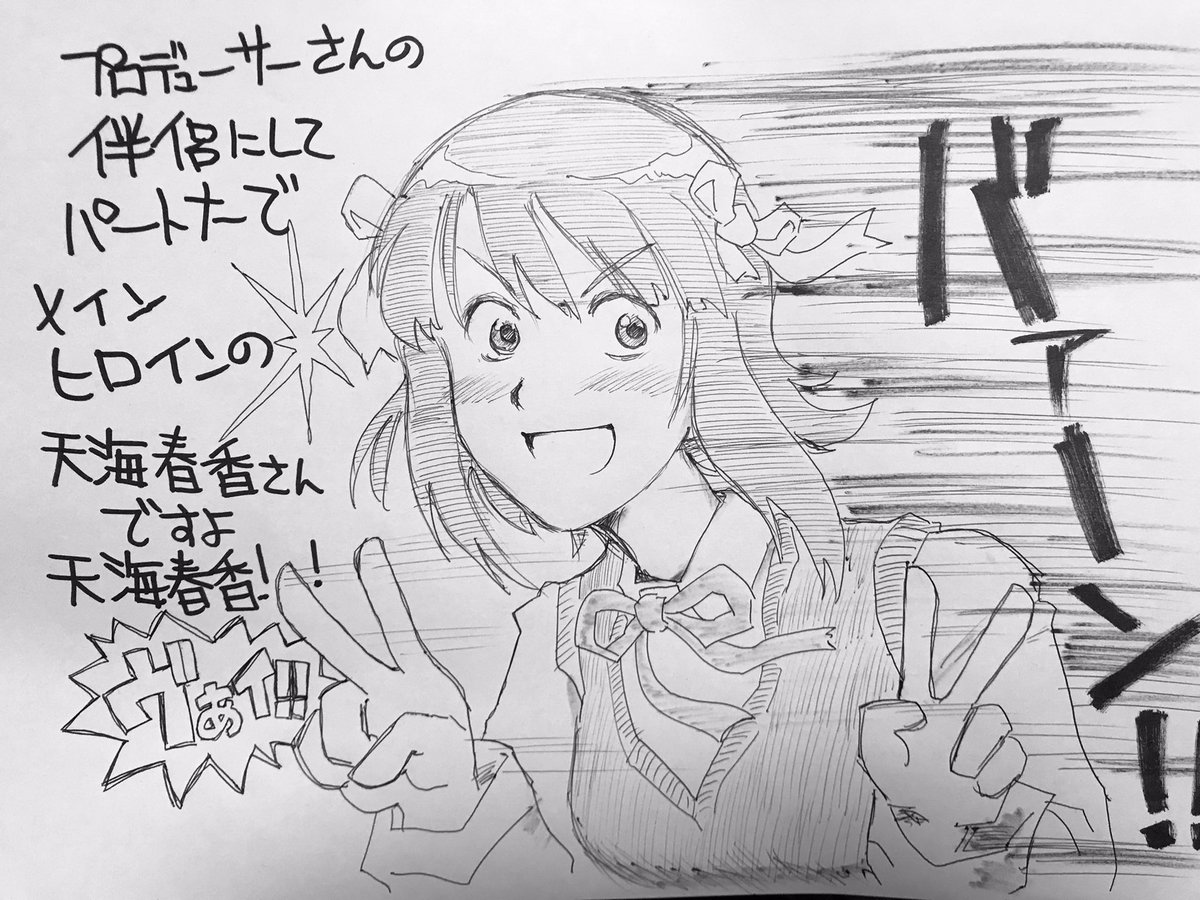 プロデューサーさんの
伴侶にして
パートナーで
メイン
ヒロインの
天海春香さん
ですよ
天海春香!!
ヴぁイ!!
バァーン!!